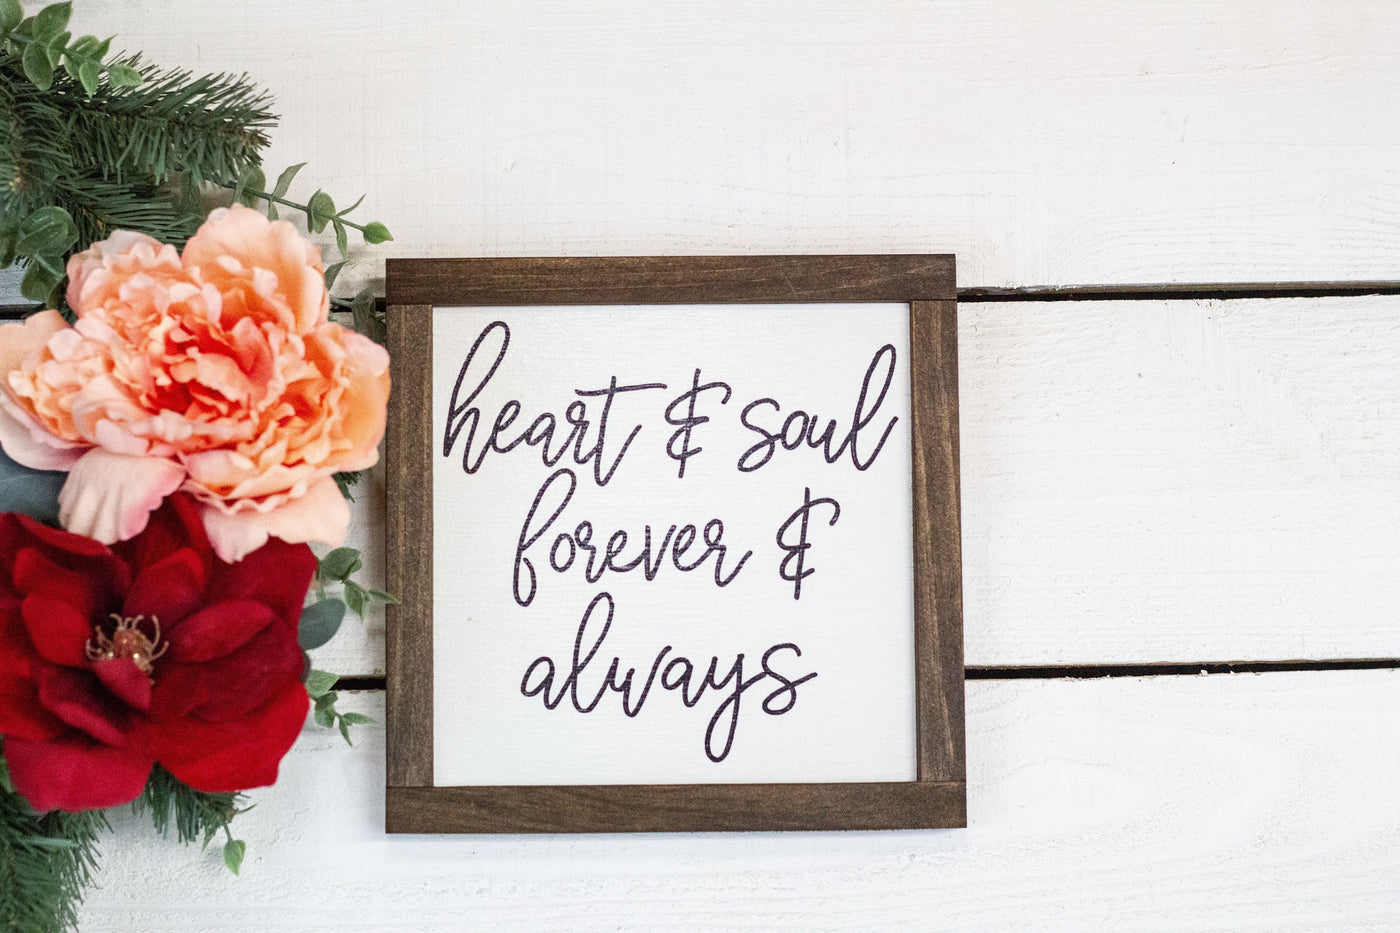 heart & soul
forever &
always